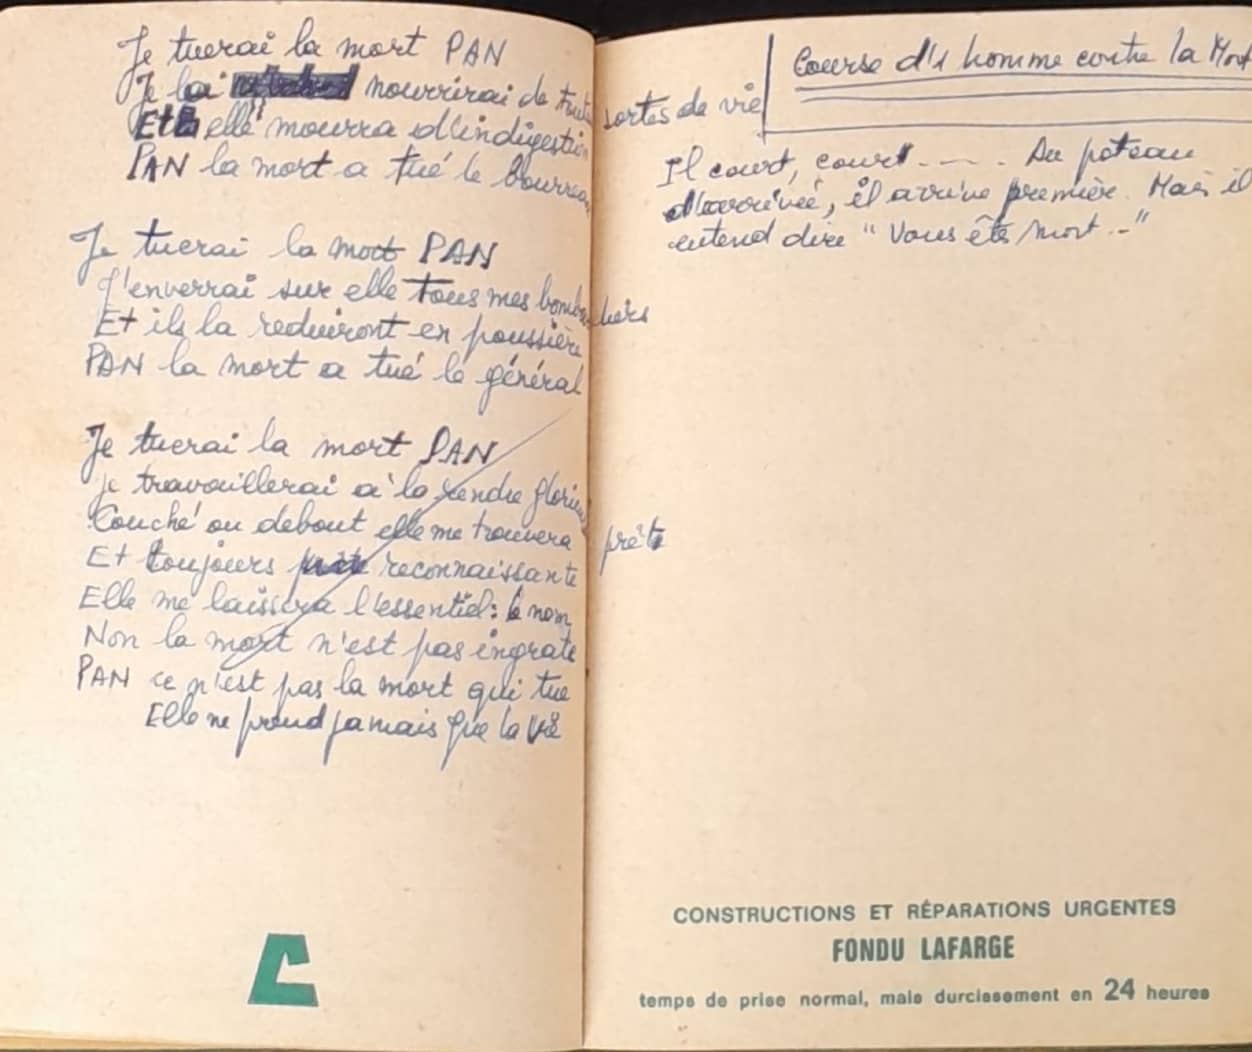 Je tuerai la mort PAN
Je la nourrirai de toutes sortes de vie
Et elle mourra d'indigestion
PAN la mort a tué le bourreau
Je tuerai la mort PAN
J'enverrai sur elle tous mes bombardiers
Et ils la reduiront en poussière
PAN la mort a tué le général
Je tuerai la mort PAN
Je travaillerai à la rendre glorieuse
Couché ou debout elle me trouvera prête
Et toujours reconnaissante
Elle me laissera l'essentiel: le nom
Non la mort n'est pas ingrate
PAN ce n'est pas la mort qui tue
Elle ne prend jamais que la vie
Course d'1 homme contre la Mort
Il court, court.... Au poteau
d'arrivée, il arrive première. Mais il
entend dire "Vous êtes mort.."
CONSTRUCTIONS ET RÉPARATIONS URGENTES
FONDU LAFARGE
temps de prise normal, mais durcissement en 24 heures